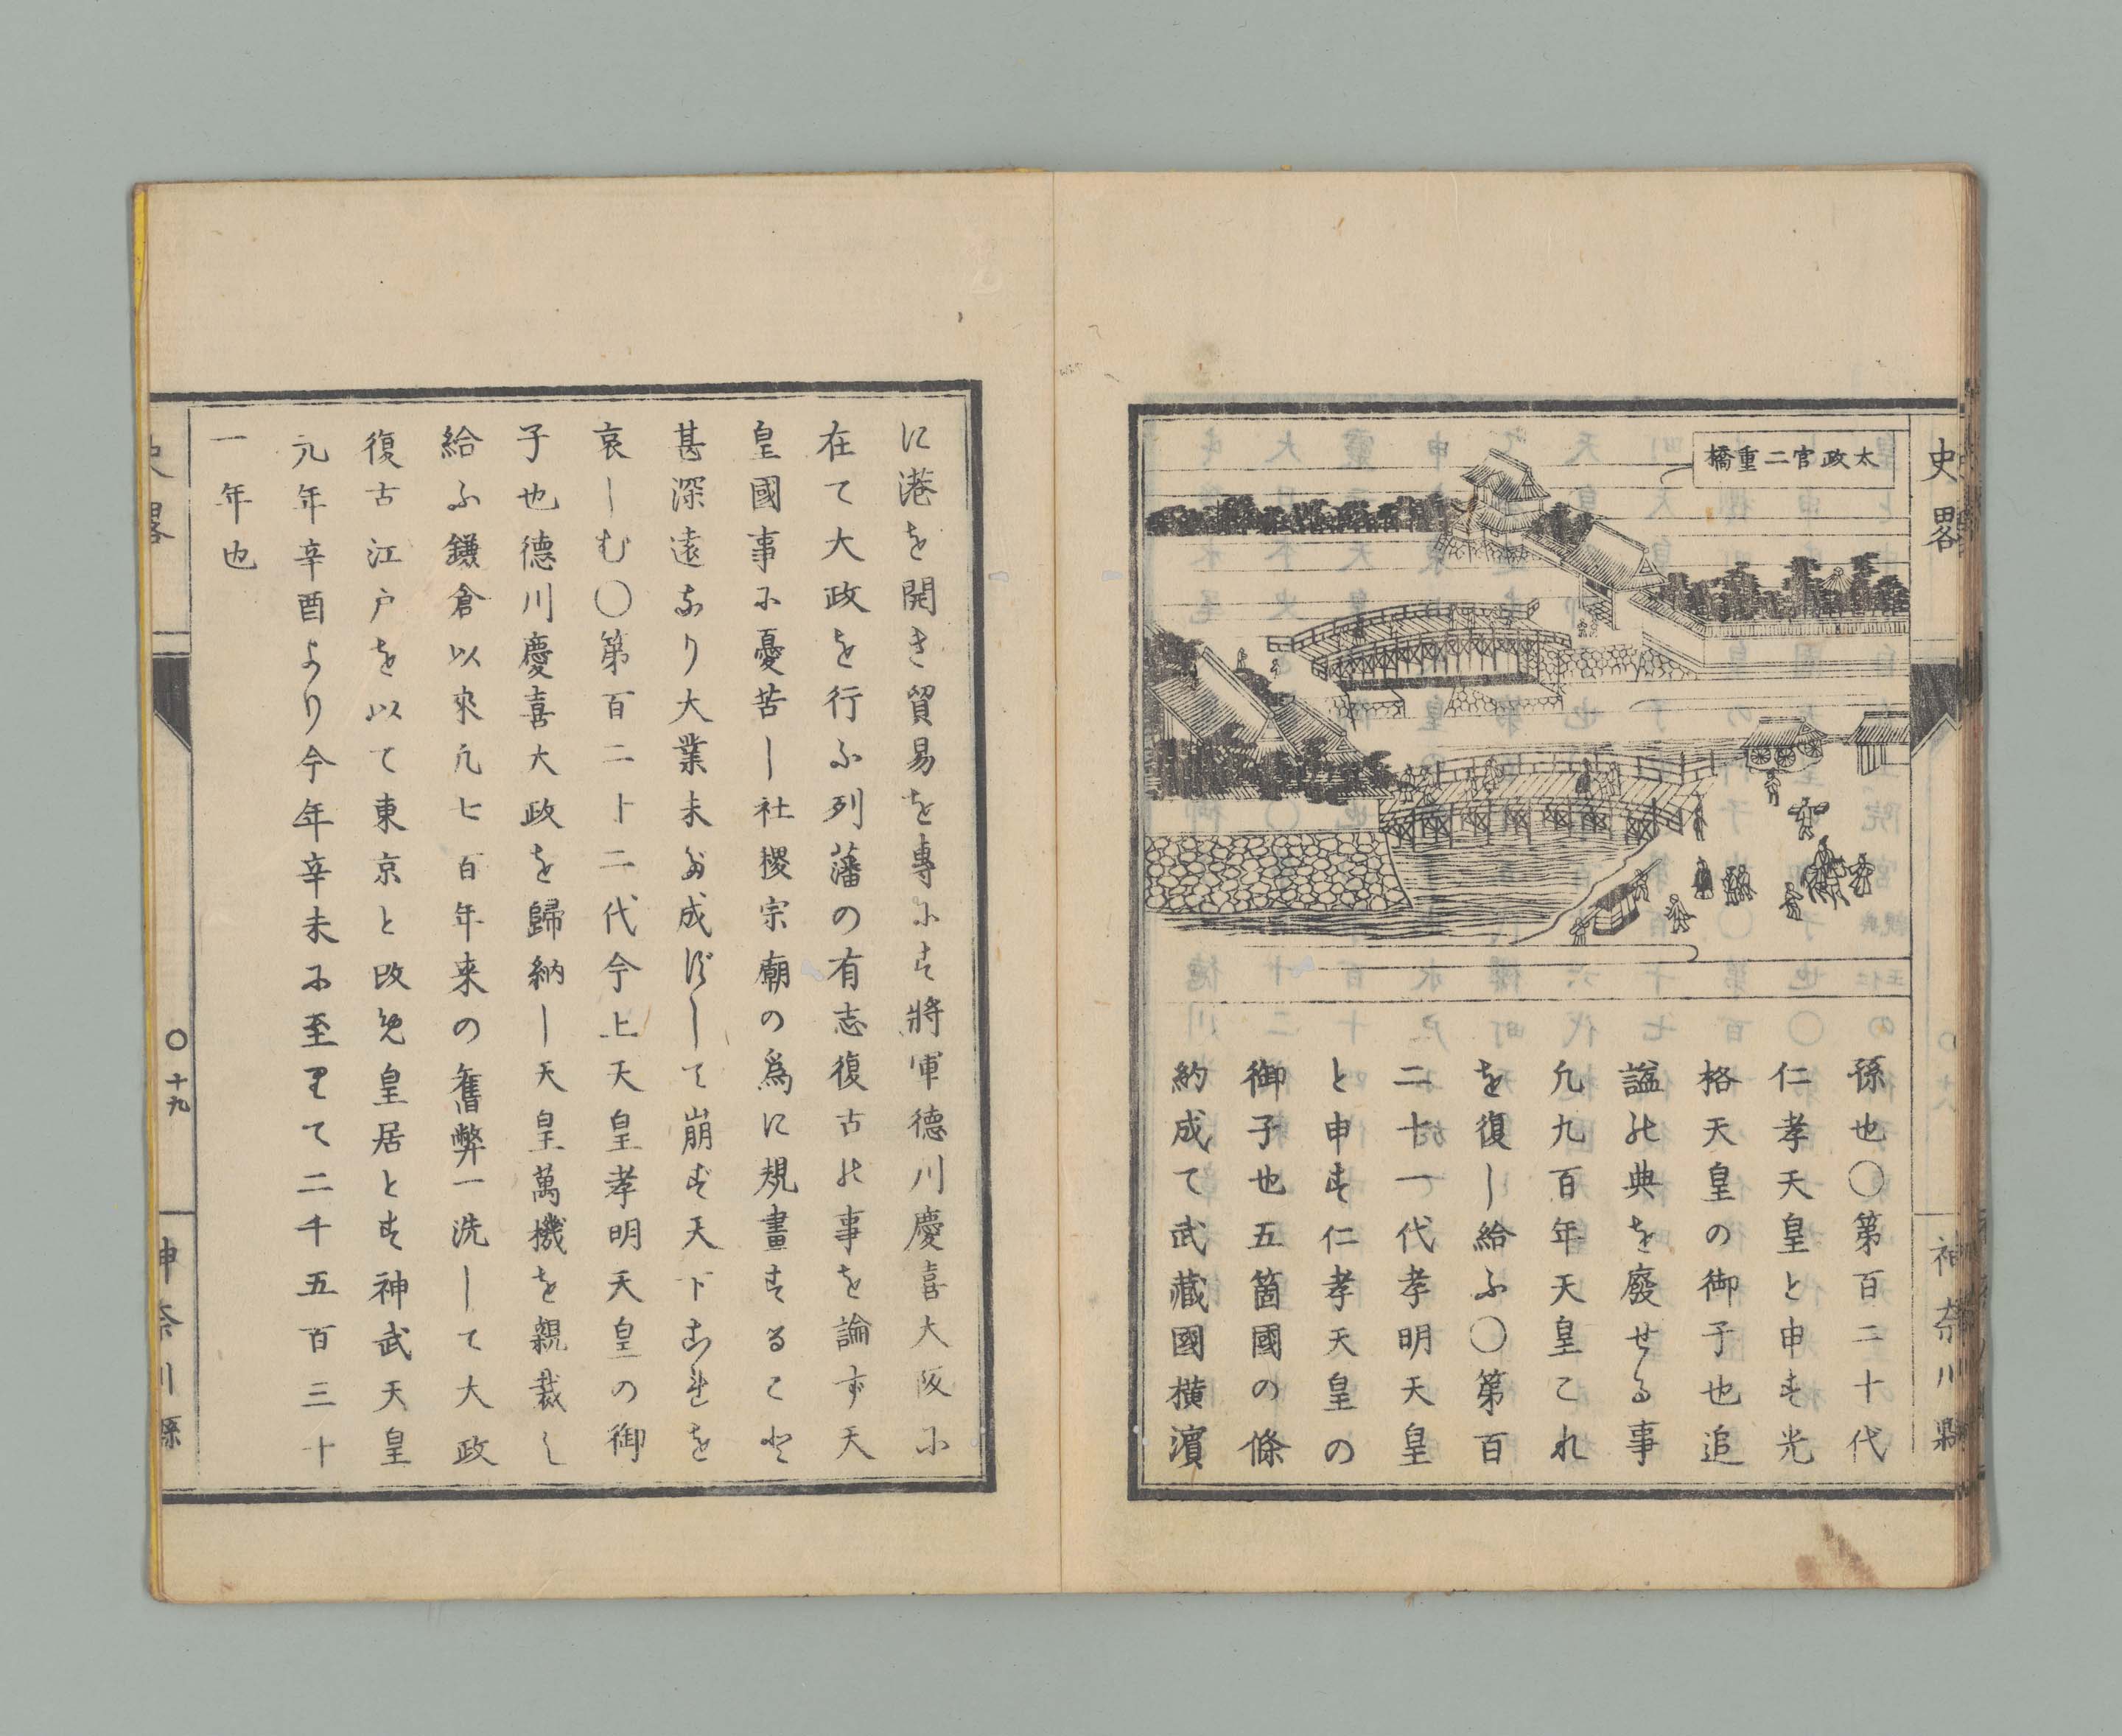 史畧
神奈川縣
太政官二重橋
孫也〇第百二十代
仁孝天皇と申す光
格天皇の御子也追
諡の典を廢せる事
凡九百年天皇これ
を復し給ふ〇第百
二十一代孝明天皇
と申す仁孝天皇の
御子也五箇國の條
約成て武藏國横濱
に港を開き貿易を專にす將軍德川慶喜大阪に
在て大政を行ふ列藩の有志復古の事を論ず天
皇國事に憂苦し社稷宗廟の爲に規畫することと
甚深遠なり大業未だ成ずして崩ず天下これを
哀しむ〇第百二十二代今上天皇孝明天皇の御
子也德川慶喜大政を歸納し天皇萬機を親裁し
給ふ鎌倉以來凡七百年来の舊弊一洗して大政
復古江戸を以て東京と改免皇居とす神武天皇
元年辛酉より今年辛未に至りて二千五百三十
一年也
史畧
〇十九
神奈川縣